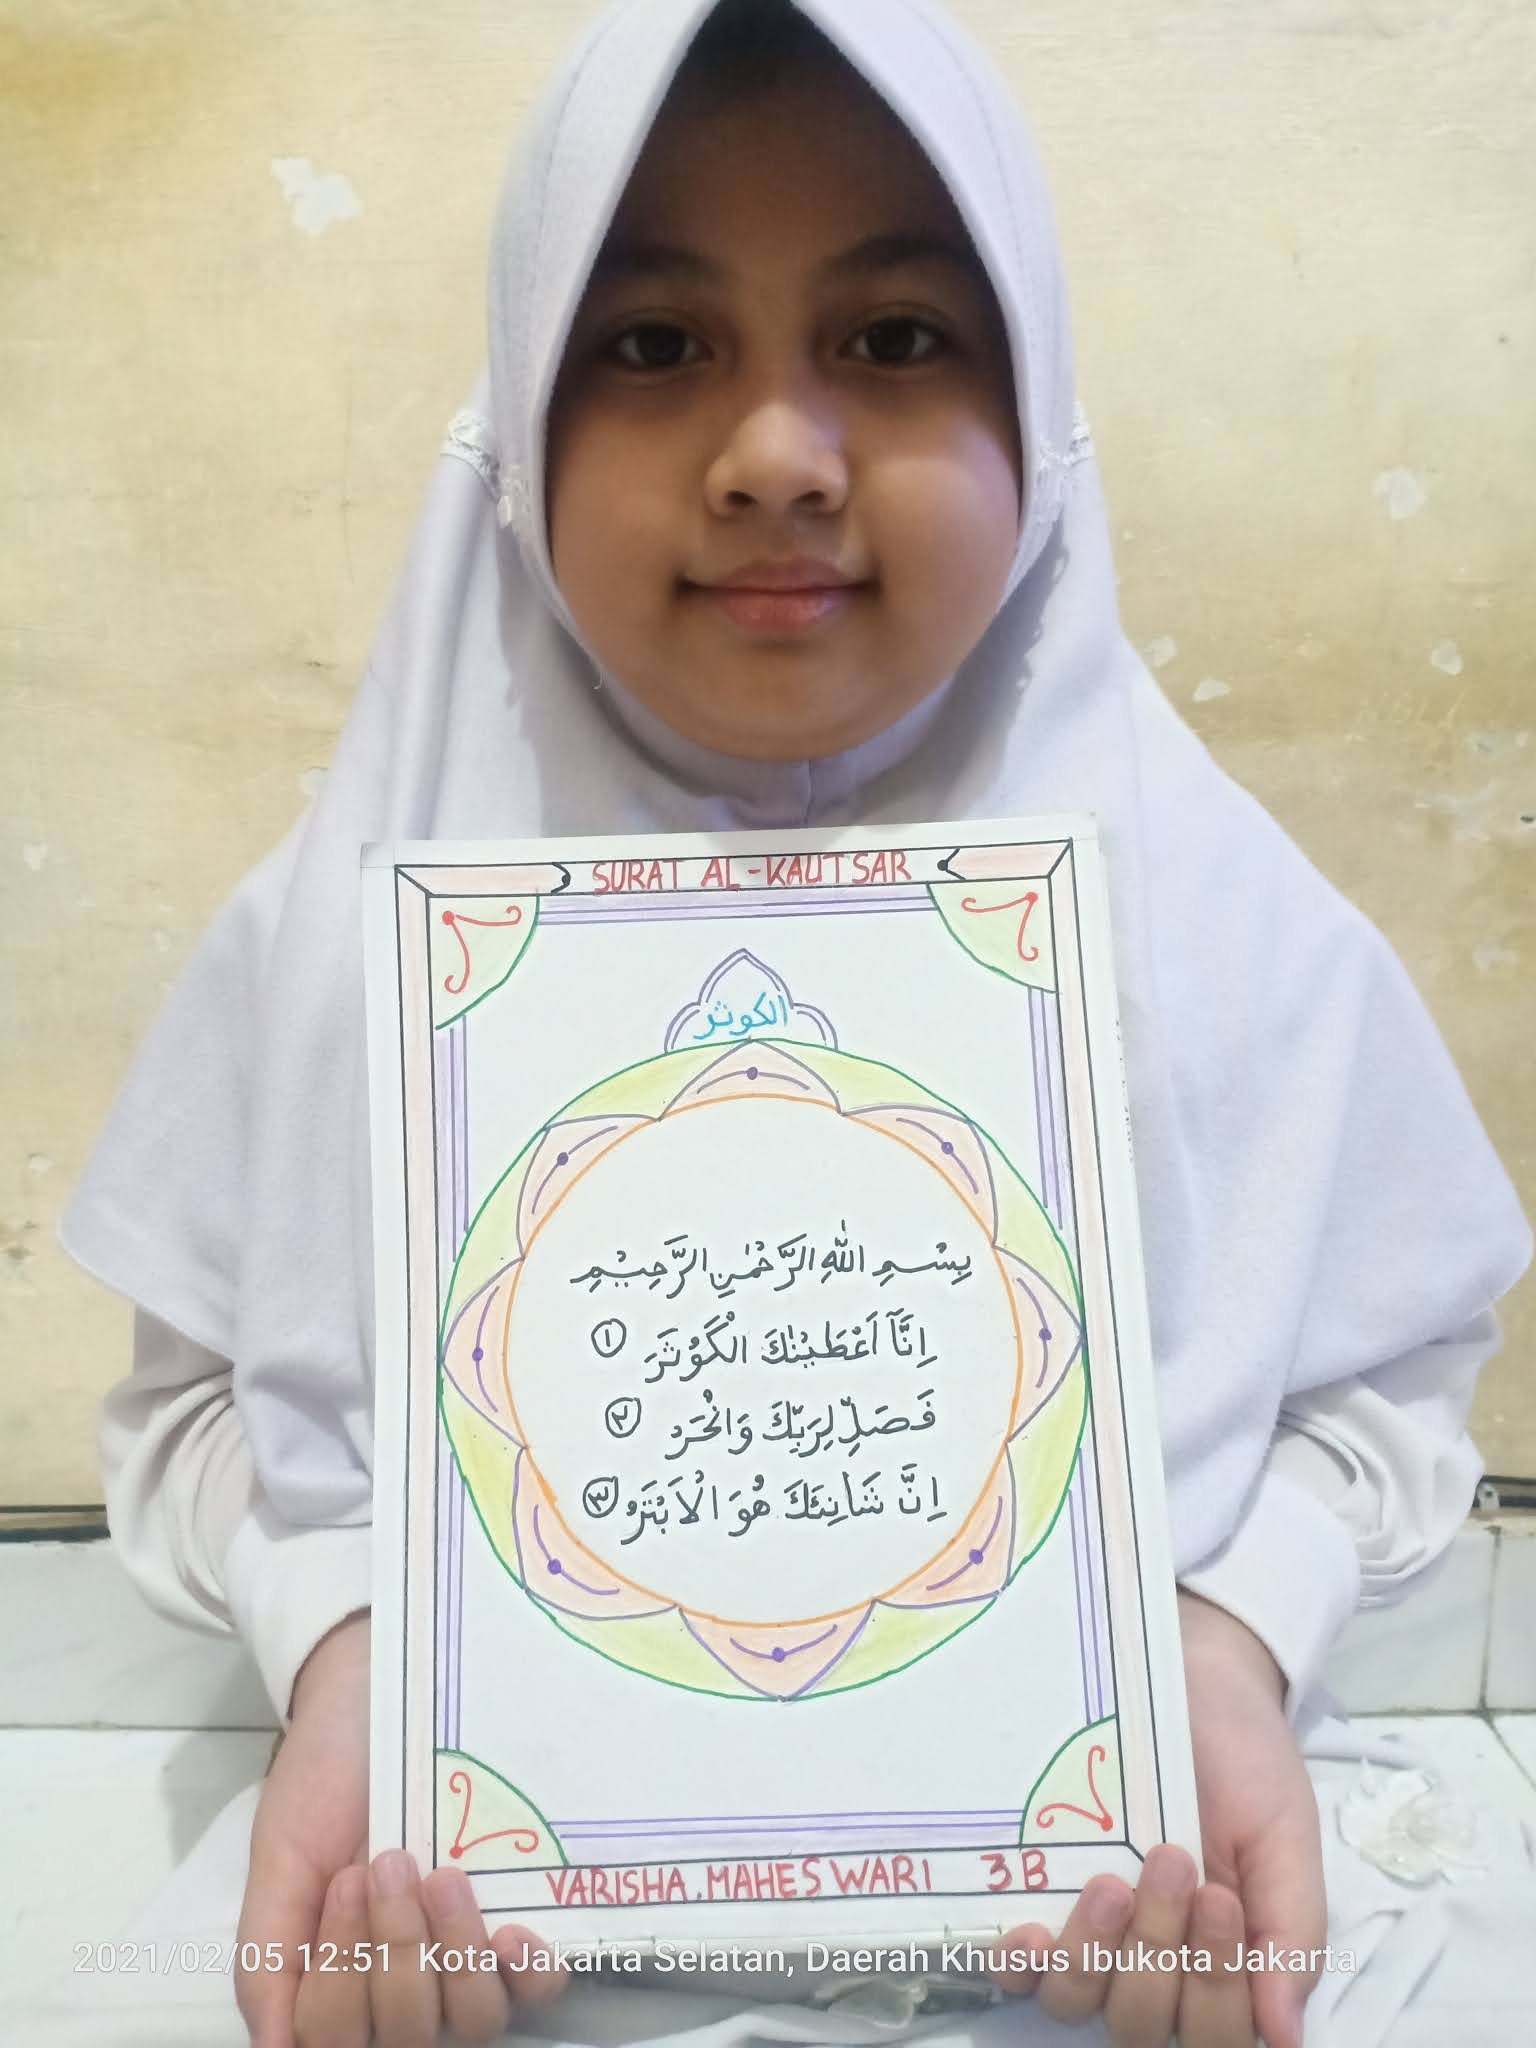 SURAT AL-KAUTSAR
الكوثر
بِسْمِ اللّٰهِ الرَّحْمٰنِ الرَّحِيْمِ
اِنَّآ اَعْطَيْنٰكَ الْكَوْثَرَ ١
فَصَلِّ لِرَبِّكَ وَانْحَرْ ٢
اِنَّ شَانِئَكَ هُوَ الْاَبْتَرُ ٣
VARISHA.MAHESWARI 3B
2021/02/05 12:51 Kota Jakarta Selatan, Daerah Khusus Ibukota Jakarta